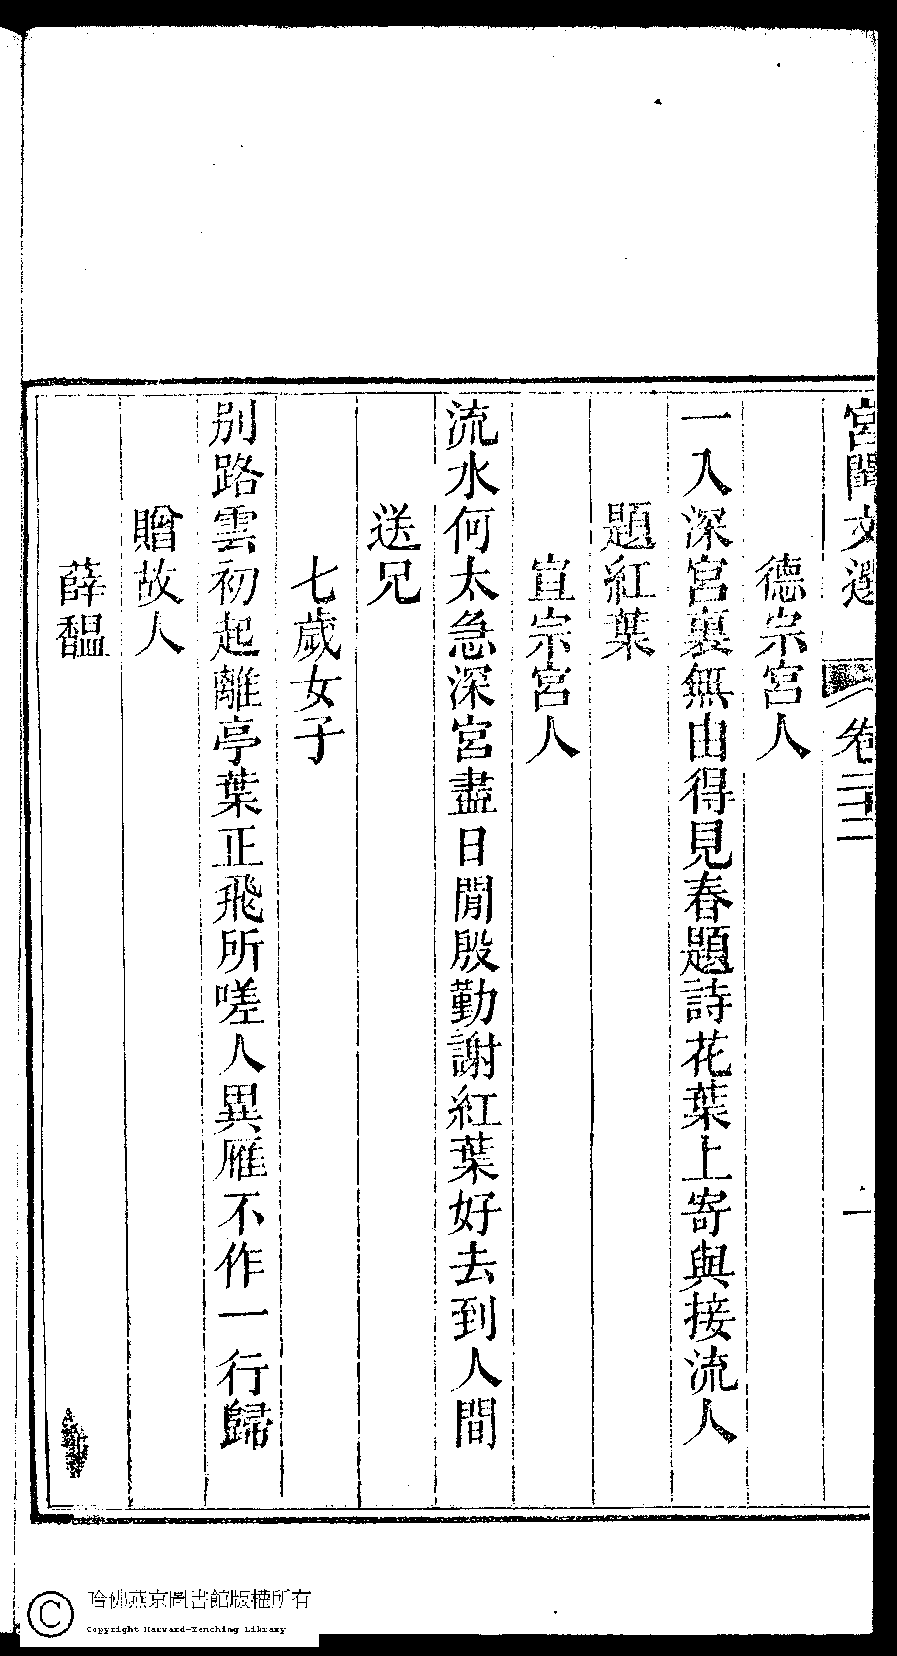 宮閨文選 卷二十二 一
德宗宮人
一入深宮裏無由得見春題詩花葉上寄與接流人
題紅葉
宣宗宮人
流水何太急深宮盡日閒殷勤謝紅葉好去到人間
送兄
七歲女子
别路雲初起離亭葉正飛所嗟人異雁不作一行歸
贈故人
薛馧
哈佛燕京圖書館版權所有
Copyright Harvard-Yenching Library